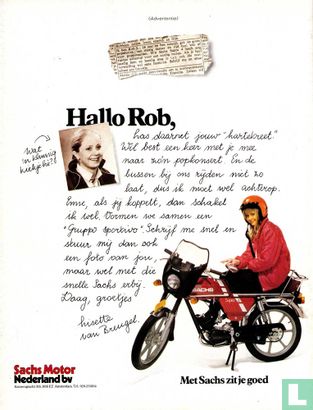 (Advertentie)
Hallo Rob,
Wat
'n
kiekje hè?!
las daarnet jouw "hartekreet".
Wil best een keer met je mee
naar zo'n popkonsert. En de
bussen bij ons rijden niet zo
laat, dus ik moet wel achterop.
Enne, als jij koppelt, dan schakel
ik wel. Vormen we samen een
"Gruppo sportivo". Schrijf me snel en
stuur mij dan ook
een foto van jou,
maar wel met die
snelle Sachs erbij.
Daag, groetjes
Lisette
van Breugel.
SACHS
Sachs Motor
Nederland bv
Met Sachs zit je goed